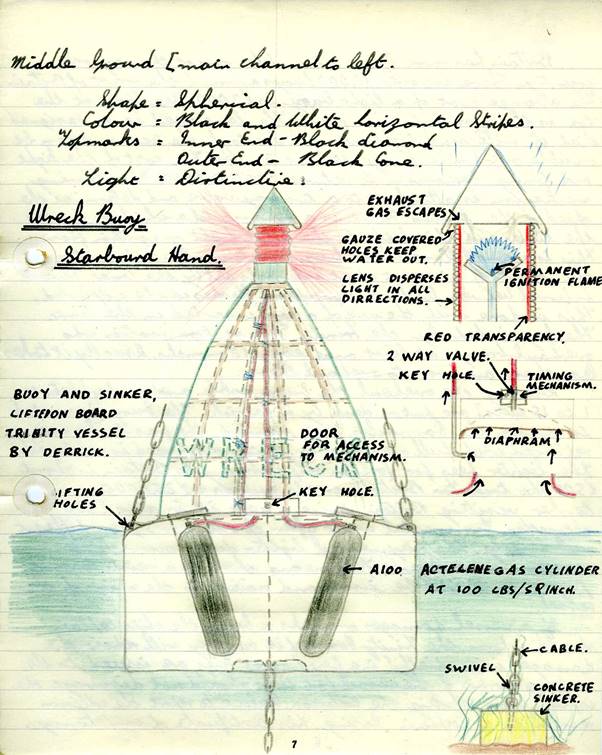 Middle Ground [main channel to left.
Shape = Spherical.
Colour = Black and White horizontal Stripes.
Topmarks = Inner End - Black diamond
Outer End - Black Cone.
Light = Distinctive.
Wreck Buoy.
Starbourd Hand.
EXHAUST
GAS ESCAPES
GAUZE COVERED
HOLES KEEP
WATER OUT.
LENS DISPERSES
LIGHT IN ALL
DIRRECTIONS.
PERMANENT
IGNITION FLAME
RED TRANSPARENCY.
2 WAY VALVE.
KEY HOLE.
TIMING
MECHANISM.
DIAPHRAM
BUOY AND SINKER,
LIFTED ON BOARD
TRINITY VESSEL
BY DERRICK.
WRECK
DOOR
FOR ACCESS
TO MECHANISM.
KEY HOLE.
LIFTING
HOLES
A100 ACTELENE GAS CYLINDER
AT 100 LBS/SQ INCH.
CABLE.
SWIVEL
CONCRETE
SINKER.
7